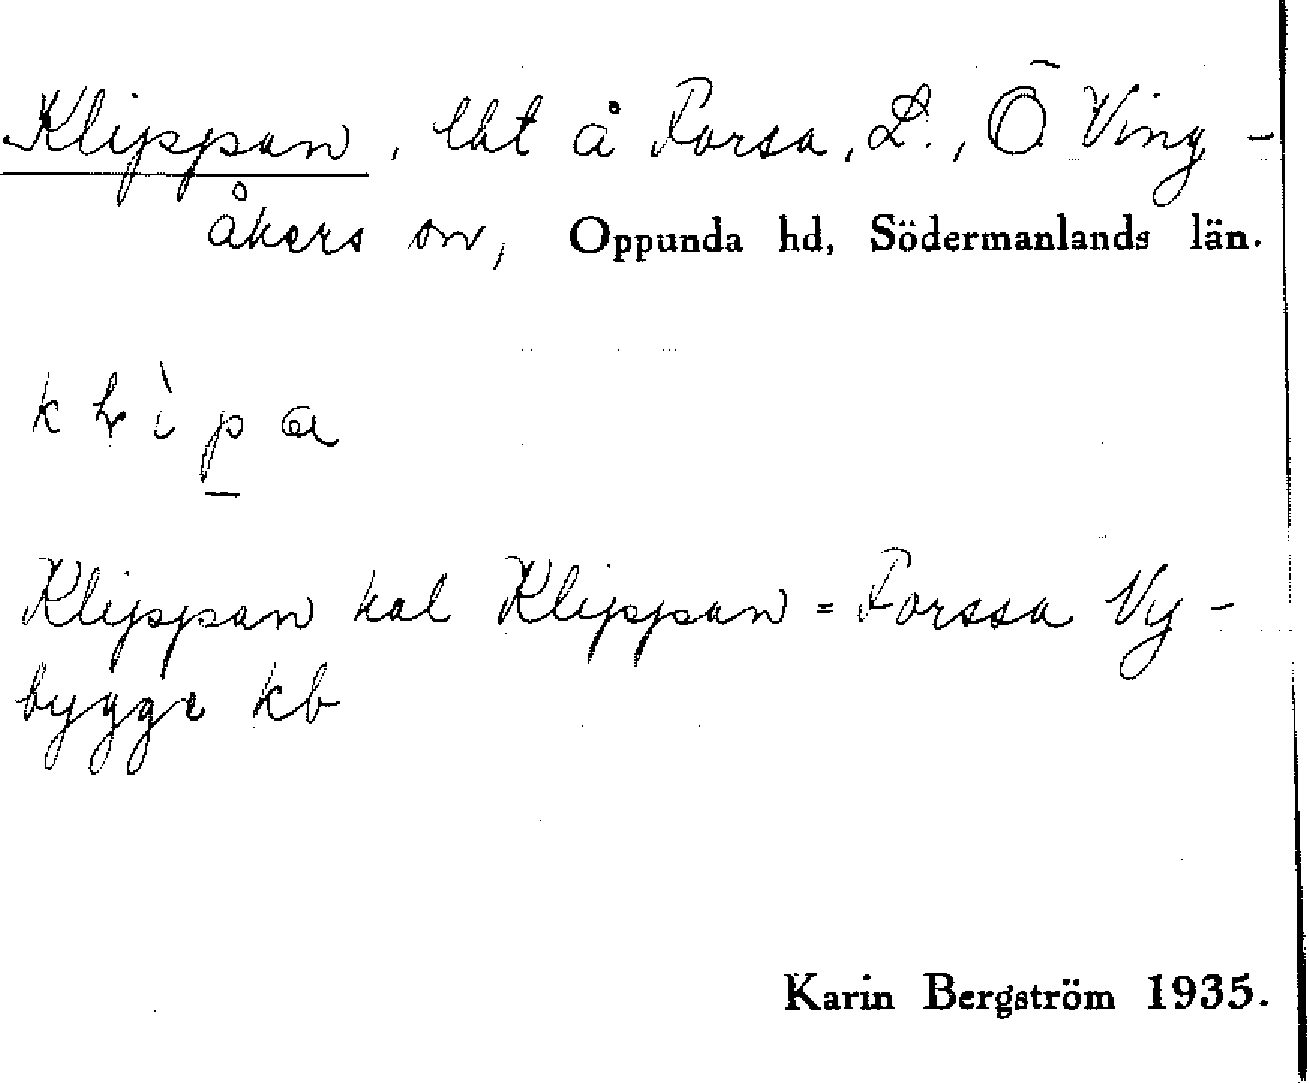 Klippan, lht å Forsa, L., Ö Ving-
åkers sn, Oppunda hd, Södermanlands län.
Klippan kal Klippan = Forssa Ny-
bygge kb
Karin Bergström 1935.